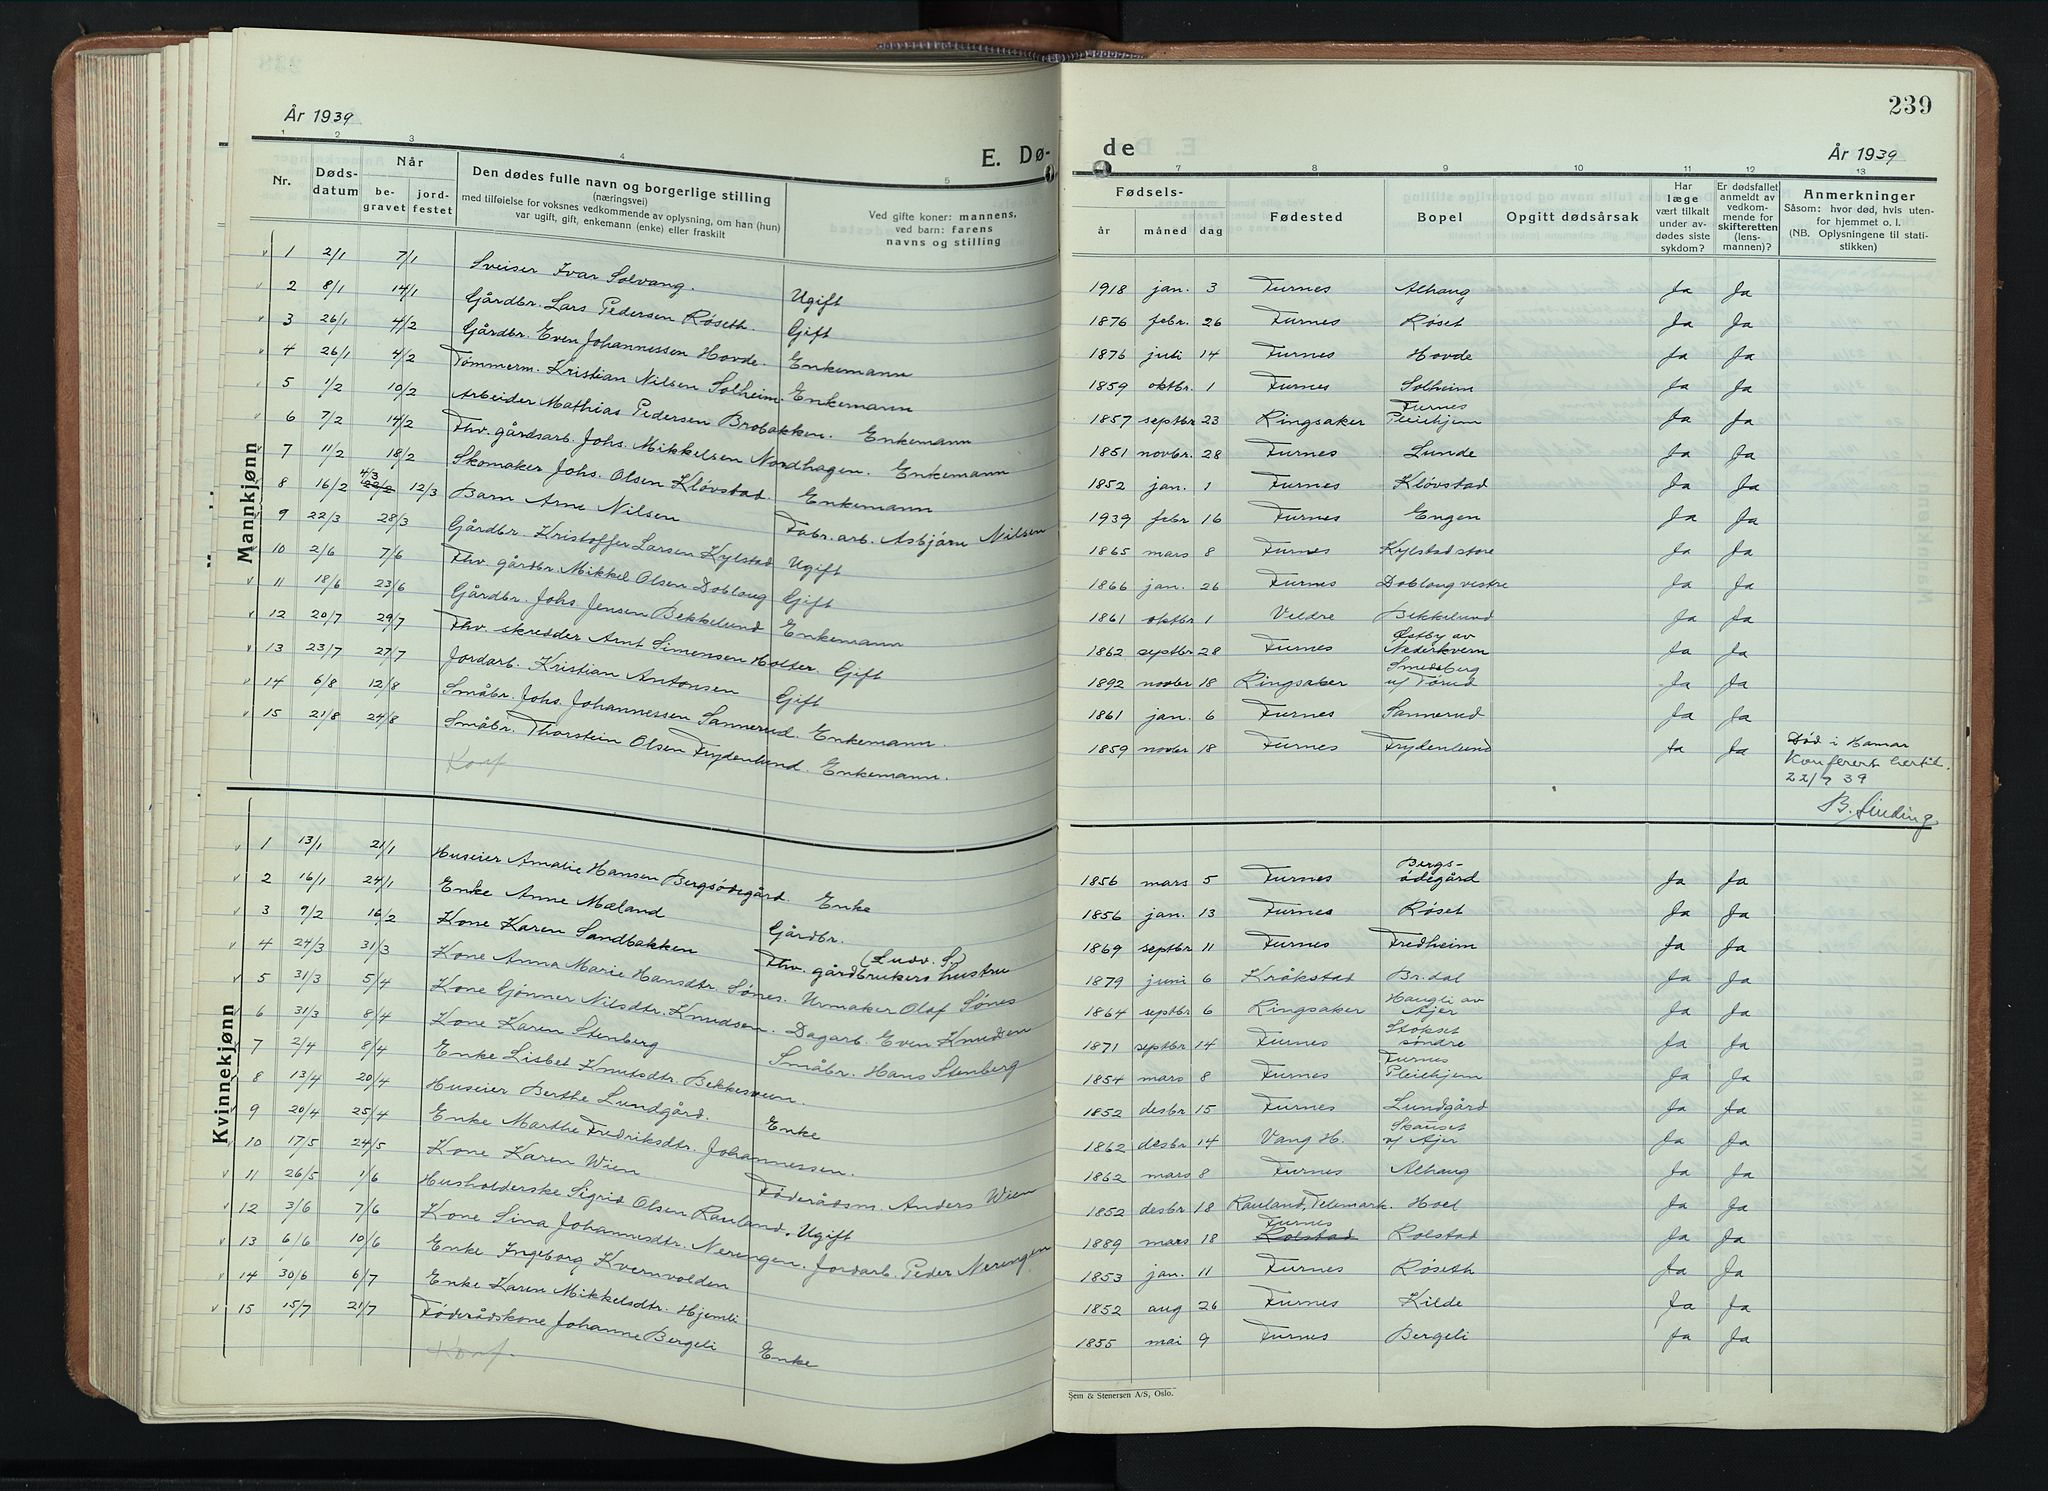 239
År 1939
E. Dø-
de
År 1939
1 2 3 4 5 7 8 9 10 11 12 13
Nr.
Døds-
datum
Når
be-
gravet
jord-
festet
Den dødes fulle navn og borgerlige stilling
(næringsvei)
med tilføielse for voksnes vedkommende av oplysning, om han (hun)
var ugift, gift, enkemann (enke) eller fraskilt
Ved gifte koner: mannens,
ved barn: farens
navns og stilling
Fødsels-
år måned dag
Fødested
Bopel
Opgitt dødsårsak
Har
læge
vært tilkalt
under av-
dødes siste
sykdom?
Er dødsfallet
anmeldt av
vedkom-
mende for
skifteretten
(lens-
mannen)?
Anmerkninger
Såsom: hvor død, hvis uten-
for hjemmet o. l.
(NB. Oplysningene til stati-
stikken)
Mannkjønn
1 2/1 7/1 Sveiser Ivar Solvang. Ugift 1918 jan. 3 Furnes Alhaug Ja Ja
2 8/1 14/1 Gårdbr. Lars Pedersen Røseth. Gift 1876 febr. 26 Furnes Røset Ja Ja
3 26/1 4/2 Gårdbr. Even Johannessen Hovde. Enkemann 1876 juli 14 Furnes Hovde Ja Ja
4 26/1 4/2 Tømmerm. Kristian Nilsen Solheim. Enkemann 1859 oktbr. 1 Furnes Solheim Ja Ja
5 1/2 10/2 Arbeider Mathias Pedersen Brobakken. Enkemann 1857 septbr 23 Ringsaker Furnes Pleiehjem Ja Ja
6 7/2 14/2 Fhv. gårdsarb. Johs. Mikkelsen Nordhagen. Enkemann 1851 novbr. 28 Furnes Lunde Ja Ja
7 11/2 18/2 Skomaker Johs. Olsen Kløvstad. Enkemann 1852 jan. 1 Furnes Kløvstad Ja Ja
8 16/2 4/3 22/2 12/3 Barn Arne Nilsen Fabr. arb. Asbjørn Nilsen 1939 febr 16 Furnes Engen Ja Ja
9 22/3 28/3 Gårdbr. Kristoffer Larsen Kylstad Ugift 1865 mars 8 Furnes Kylstad store Ja Ja
10 2/6 7/6 Fhv. gårdbr. Mikkel Olsen Doblong Gift 1866 jan. 26 Furnes Doblong vestre Ja Ja
11 18/6 23/6 Gårdbr. Johs. Jensen Bekkelund Enkemann 1861 oktbr 1 Veldre Bekkelund Ja Ja
12 20/7 29/7 Fhv. skredder Arnt Simensen Holter. Gift 1862 septbr 28 Furnes Østby av Nederkvern Ja Ja
13 23/7 27/7 Jordarb. Kristian Antonsen Gift 1892 novbr 18 Ringsaker Smedsberg u/ Tørud Ja Ja
14 6/8 12/8 Småbr. Johs. Johannessen Sannerud. Enkemann. 1861 jan. 6 Furnes Sannerud Ja Ja
15 21/8 24/8 Småbr. Thorstein Olsen Frydenlund. Enkemann. 1859 novbr 18 Furnes Frydenlund Ja Ja Død i Hamar
Konf
Konferert hertil.
22/9 39
B. Sinding
Kvinnekjønn
1 13/1 21/1 Huseier Amalie Hansen Bergsødegård. Enke 1856 mars 5 Furnes Bergs-ødegård Ja Ja
2 16/1 24/1 Enke Anne Mæland 1856 jan. 13 Furnes Røset Ja Ja
3 9/2 16/2 Kone Karen Sandbakken Gårdbr. (Ludv. S) 1869 septbr 11 Furnes Fredheim Ja Ja
4 24/3 31/3 Kone Anna Marie Hansdtr. Sønes. Fhv. gårdbrukers hustru Urmaker Olaf Sønes 1879 juni 6 Kråkstad Br.dal Ja Ja
5 31/3 5/4 Kone Gjønner Nilsdtr. Knudsen. Dagarb. Even Knudsen 1864 septbr 6 Ringsaker Haugli av Ajer Ja Ja
6 31/3 8/4 Kone Karen Stenberg Småbr. Hans Stenberg 1871 septbr 14 Furnes Stokset søndre Ja Ja
7 2/4 8/4 Enke Lisbet Knutsdtr. Bekkesveen. 1854 mars 8 Furnes Furnes Pleiehjem Ja Ja
8 13/4 20/4 Huseier Berthe Lundgård. Enke 1852 desbr 15 Furnes Lundgård Ja Ja
9 20/4 25/4 Enke Marthe Fredriksdtr. Johannessen. 1862 desbr 14 Vang H. Skauset v/ Ajer Ja Ja
10 17/5 24/5 Kone Karen Wien Føderådsm. Anders Wien 1862 mars 8 Furnes Alhaug Ja Ja
11 26/5 1/6 Husholderske Sigrid Olsen Rauland. Ugift 1852 desbr 18 Rauland, Telemark. Hoel Ja Ja
12 3/6 7/6 Kone Sina Johannesdtr. Nerengen. Jordarb. Peder Nerengen 1889 mars 18 Furnes Rolstad Rolstad Ja Ja
13 6/6 10/6 Enke Ingeborg Kvernvolden 1853 jan. 11 Furnes Røseth Ja Ja
14 30/6 6/7 Enke Karen Mikkelsdtr. Hjemli 1852 aug 26 Furnes Kilde Ja Ja
15 15/7 21/7 Føderådskone Johanne Bergeli Enke 1855 mai 9 Furnes Bergeli Ja Ja
Konf.
Sem & Stenersen A/S, Oslo.